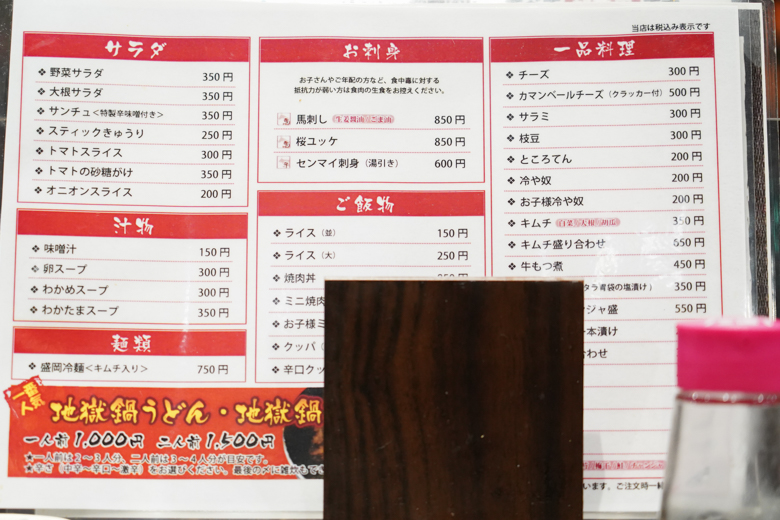 当店は税込み表示です
サラダ
❖ 野菜サラダ 350 円
❖ 大根サラダ 350 円
❖ サンチュ<特製辛味噌付き> 350 円
❖ スティックきゅうり 250 円
❖ トマトスライス 300 円
❖ トマトの砂糖がけ 350 円
❖ オニオンスライス 200 円
汁物
❖ 味噌汁 150 円
❖ 卵スープ 300 円
❖ わかめスープ 300 円
❖ わかたまスープ 350 円
麺類
❖ 盛岡冷麺<キムチ入り> 750 円
お刺身
お子さんやご年配の方など、食中毒に対する
抵抗力が弱い方は食肉の生食をお控えください。
馬刺し 生姜醤油 ごま油 850 円
桜ユッケ 850 円
センマイ刺身(湯引き) 600 円
ご飯物
❖ ライス(並) 150 円
❖ ライス(大) 250 円
❖ 焼肉丼
❖ ミニ焼肉
❖ お子様ミ
❖ クッパ(
❖ 辛口クッ
一品料理
❖ チーズ 300 円
❖ カマンベールチーズ(クラッカー付) 500 円
❖ サラミ 300 円
❖ 枝豆 300 円
❖ ところてん 200 円
❖ 冷や奴 200 円
❖ お子様冷や奴 200 円
❖ キムチ 白菜 大根 胡瓜 350 円
❖ キムチ盛り合わせ 650 円
❖ 牛もつ煮 450 円
タラ胃袋の塩漬け) 350 円
ンジャ盛 550 円
本漬け
合わせ
一番人気
地獄鍋うどん・地獄鍋
一人前1,000円 二人前1,500円
★一人前は2〜3人分、二人前は3〜4人分が目安です。
★辛さ(中辛〜辛口〜激辛)をお選びください。最後の〆に雑炊もでき
います。ご注文時